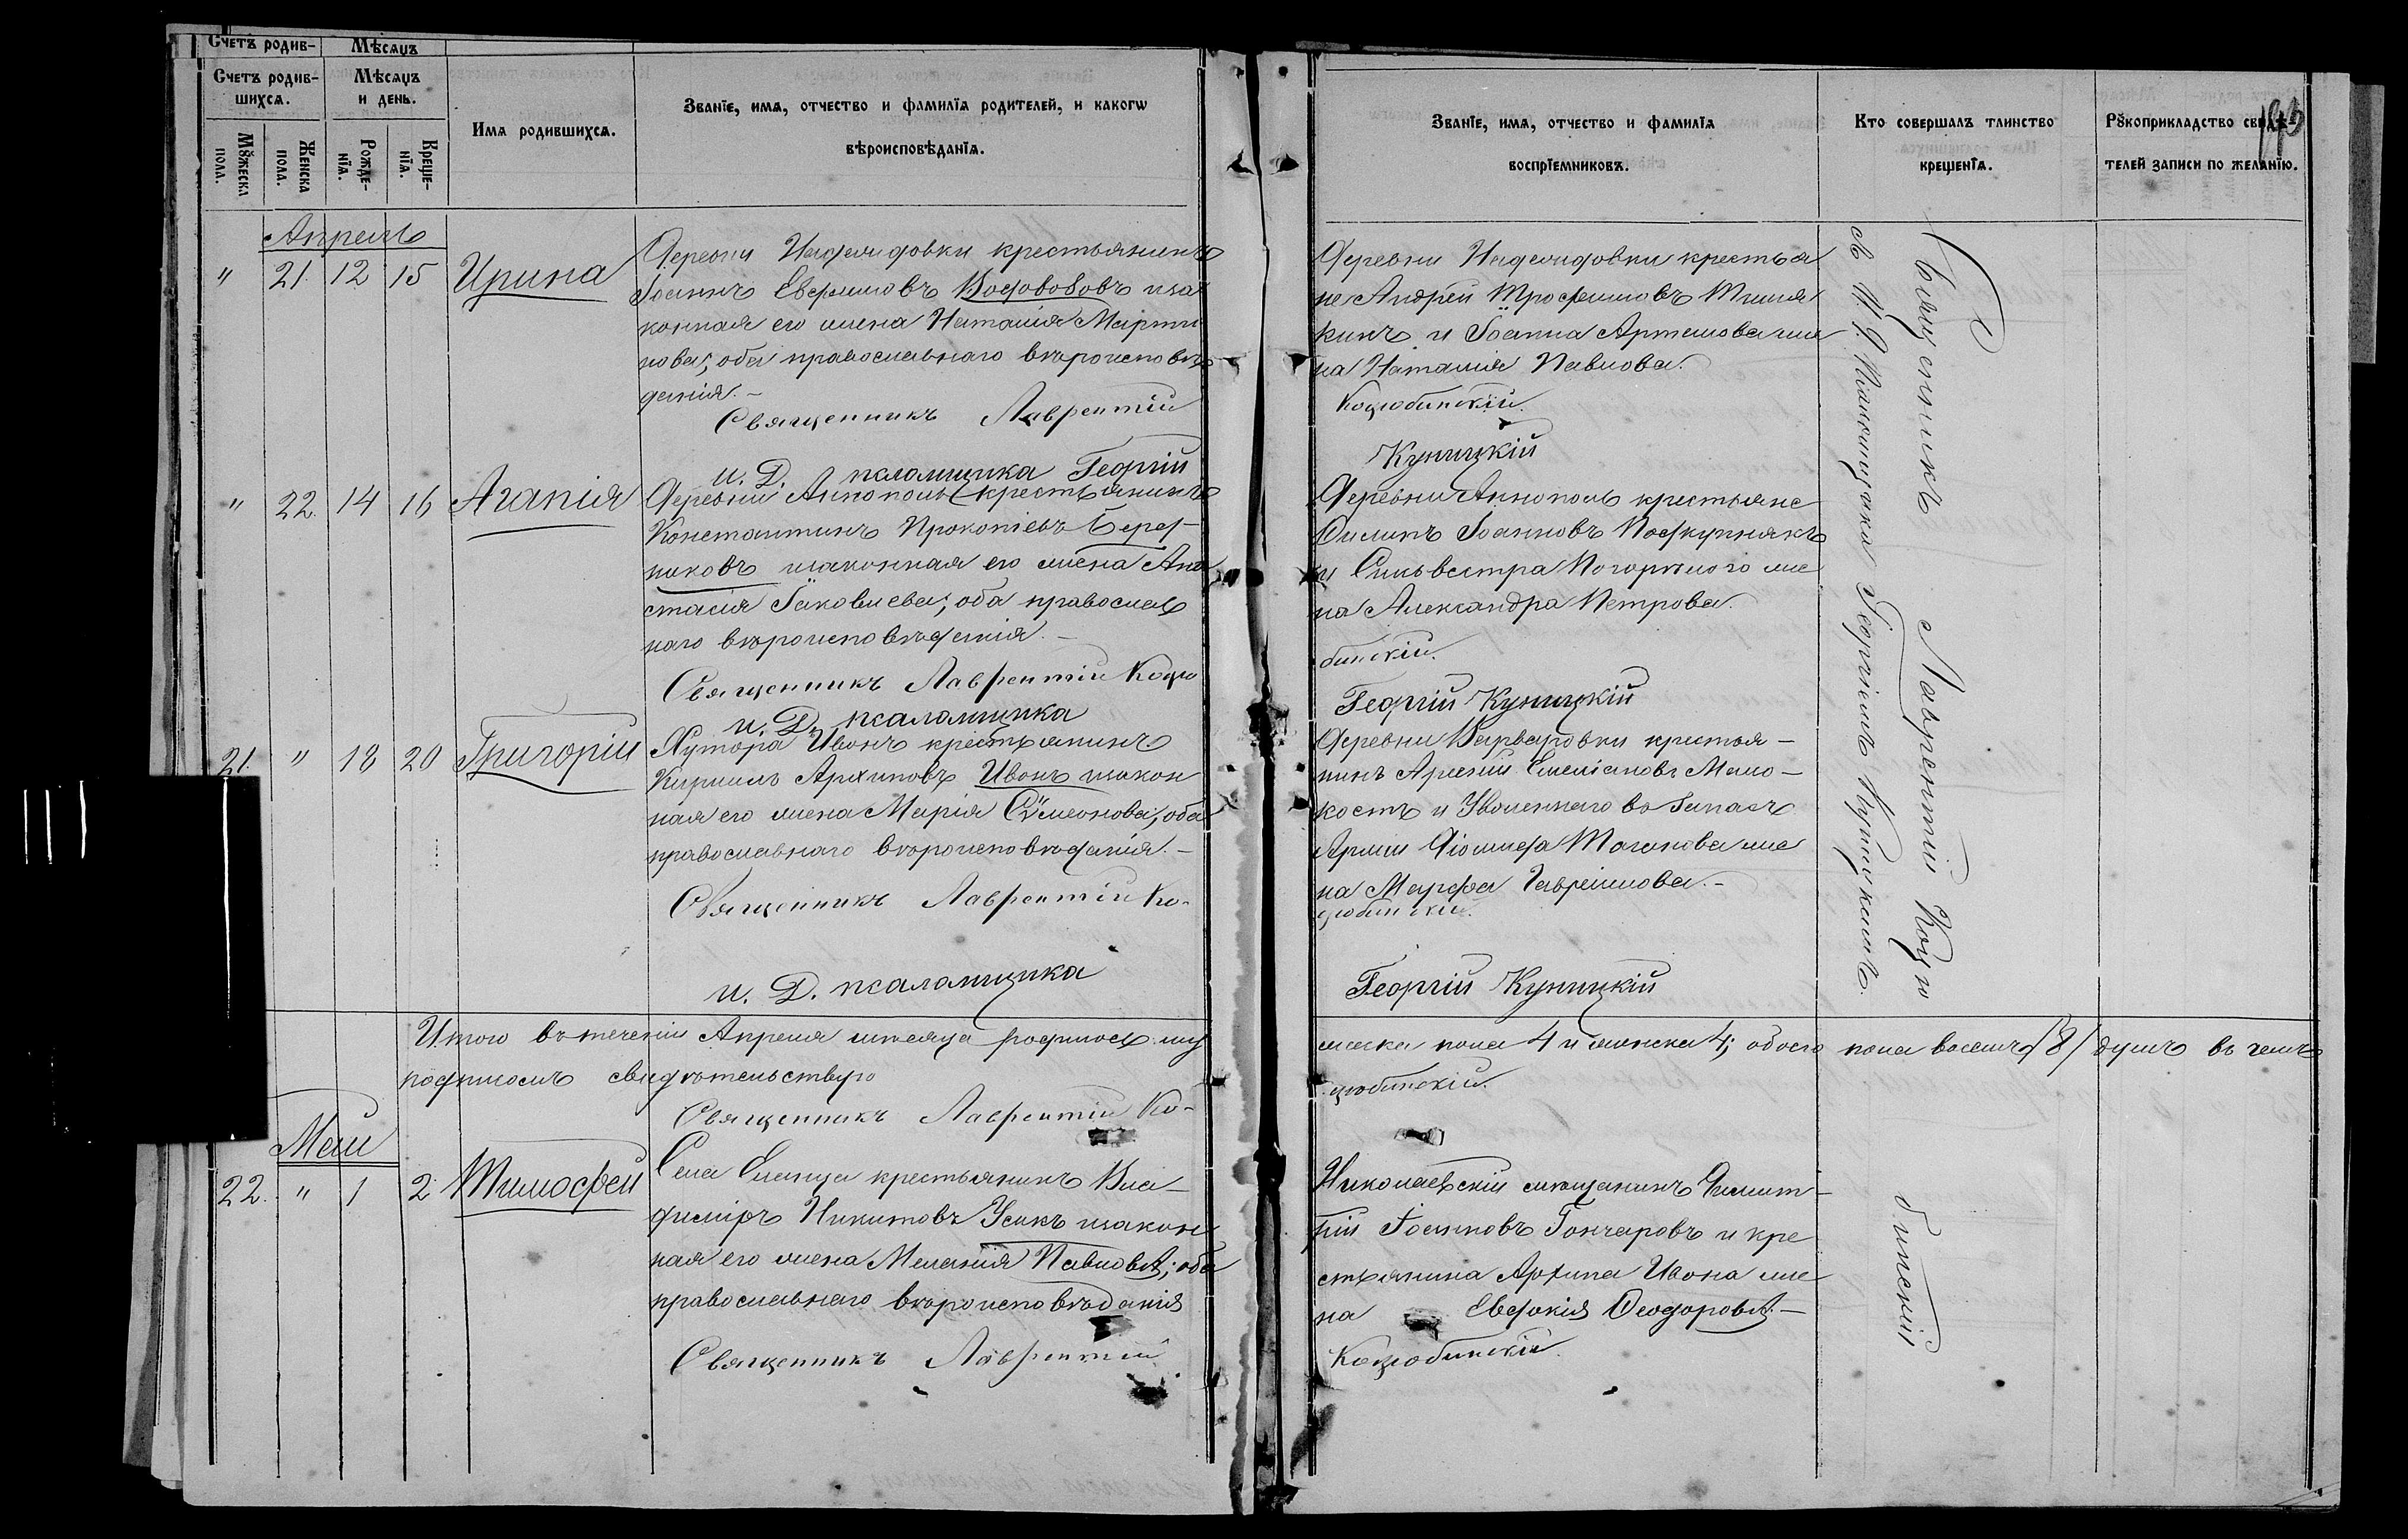 Счетъ родив-
Мѣсяцъ
Счетъ родив-
шихся.
Мѣсяцъ
и день.
Имя родившихся.
Званїе, имя, отчество и фамилїя родителей, и какогѡ
вѣроисповѣданїя.
Мꙋжеска
пола.
Женска
пола.
Рожде-
нїя.
Креще-
нїя.
Апрель
" 21. 12 15 Ирина
Деревни Надеждовки крестьянинъ
Іоаннъ Евфимовъ Водовозовъ иза
конная его жена Наталія Марти
нова; оба православнаго вѣроисповѣ
данія. –
Священникъ Лаврентій
и. д. псаломщика Георгій
" 22. 14 16 Агапія
Деревни Аннополь крестьянинъ
Константинъ Прокопіевъ Беред-
никовъ изаконная его жена Ана
стасія Іаковлева; оба православ
наго вѣроисповѣданія. –
Священникъ Лаврентій Коцю
и. д. псаломщика
21. " 18 20 Григорій
Хутора Ивонъ крестьянинъ
Кириллъ Архиповъ Ивонъ изакон
ная его жена Марія Сѵмеонова; оба
православнаго вѣроисповѣданія. –
Священникъ Лаврентій Ко-
и. д. псаломщика
Итого въ теченіи Апреля мѣсяца родилось му
подписомъ свидѣтельствую
Священникъ Лаврентій Ко-
Май
22. " 1 2 Тимофей
Села Еланца крестьянинъ Вла-
димиръ Никитовъ Усикъ изакон
ная его жена Меланія Павлова; оба
православнаго вѣроисповѣданія
Священникъ Лаврентій
Званїе, имя, отчество и фамилїя
воспрїемниковъ.
Кто совершалъ таинство
крещенїя.
Рꙋкоприкладство свидѣ-
телей записи по желанїю.
Деревни Надеждовки крестья
не Андрей Трофимовъ
и Іоанна Артемова же
на Наталія Павлова.
Коцюбинскій.
Куницкій
Деревни Аннополь крестьяне
Филипъ Іоанновъ Поджупнякъ
и Сильвестра Погорѣлого же
на Александра Петрова.
бинскій.
Георгій Куницкій
Деревни Варваровки крестья-
нинъ Арсеній Емеліановъ Мало-
кость и Уволеннаго въ Запасъ
Арміи Діомида Таганова же
на Марфа Гавріилова. –
цюбинскій.
Георгій Куницкій
жеска пола 4 и женска 4; обоего пола восемь /8/ душъ въ чемъ
цюбинскій.
Николаевскій мѣщанинъ Димит-
рій Іоанновъ Гончаровъ и кре
стьянина Архипа Ивона же
на Евдокія Ѳеодорова. –
Коцюбинскій.
Священникъ Лаврентій Коцю
съ И. Д. Псаломщика Георгіемъ Куницкимъ.
бинскій